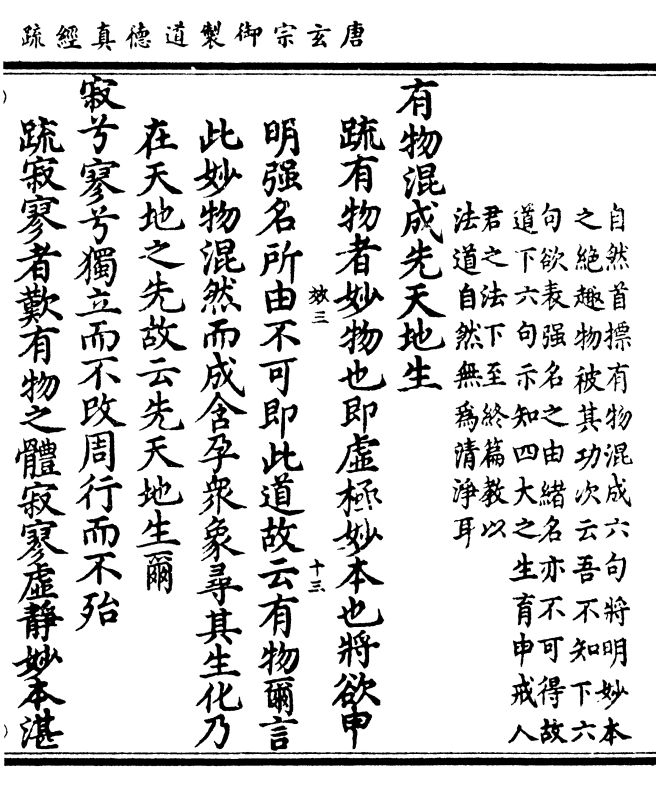 唐玄宗御製道德真經疏
自然首摽有物混成六句將明妙本
之絶趣物被其功次云吾不知下六
句欲表强名之由緒名亦不可得故
道下六句示知四大之生育申戒人
君之法下至終篇教以
法道自然無爲清淨耳
有物混成先天地生
疏有物者妙物也即虛極妙本也將欲申
效三
十三
明强名所由不可即此道故云有物爾言
此妙物混然而成含孕衆象尋其生化乃
在天地之先故云先天地生爾
寂兮寥兮獨立而不改周行而不殆
疏寂寥者歎有物之體寂寥虛靜妙本湛